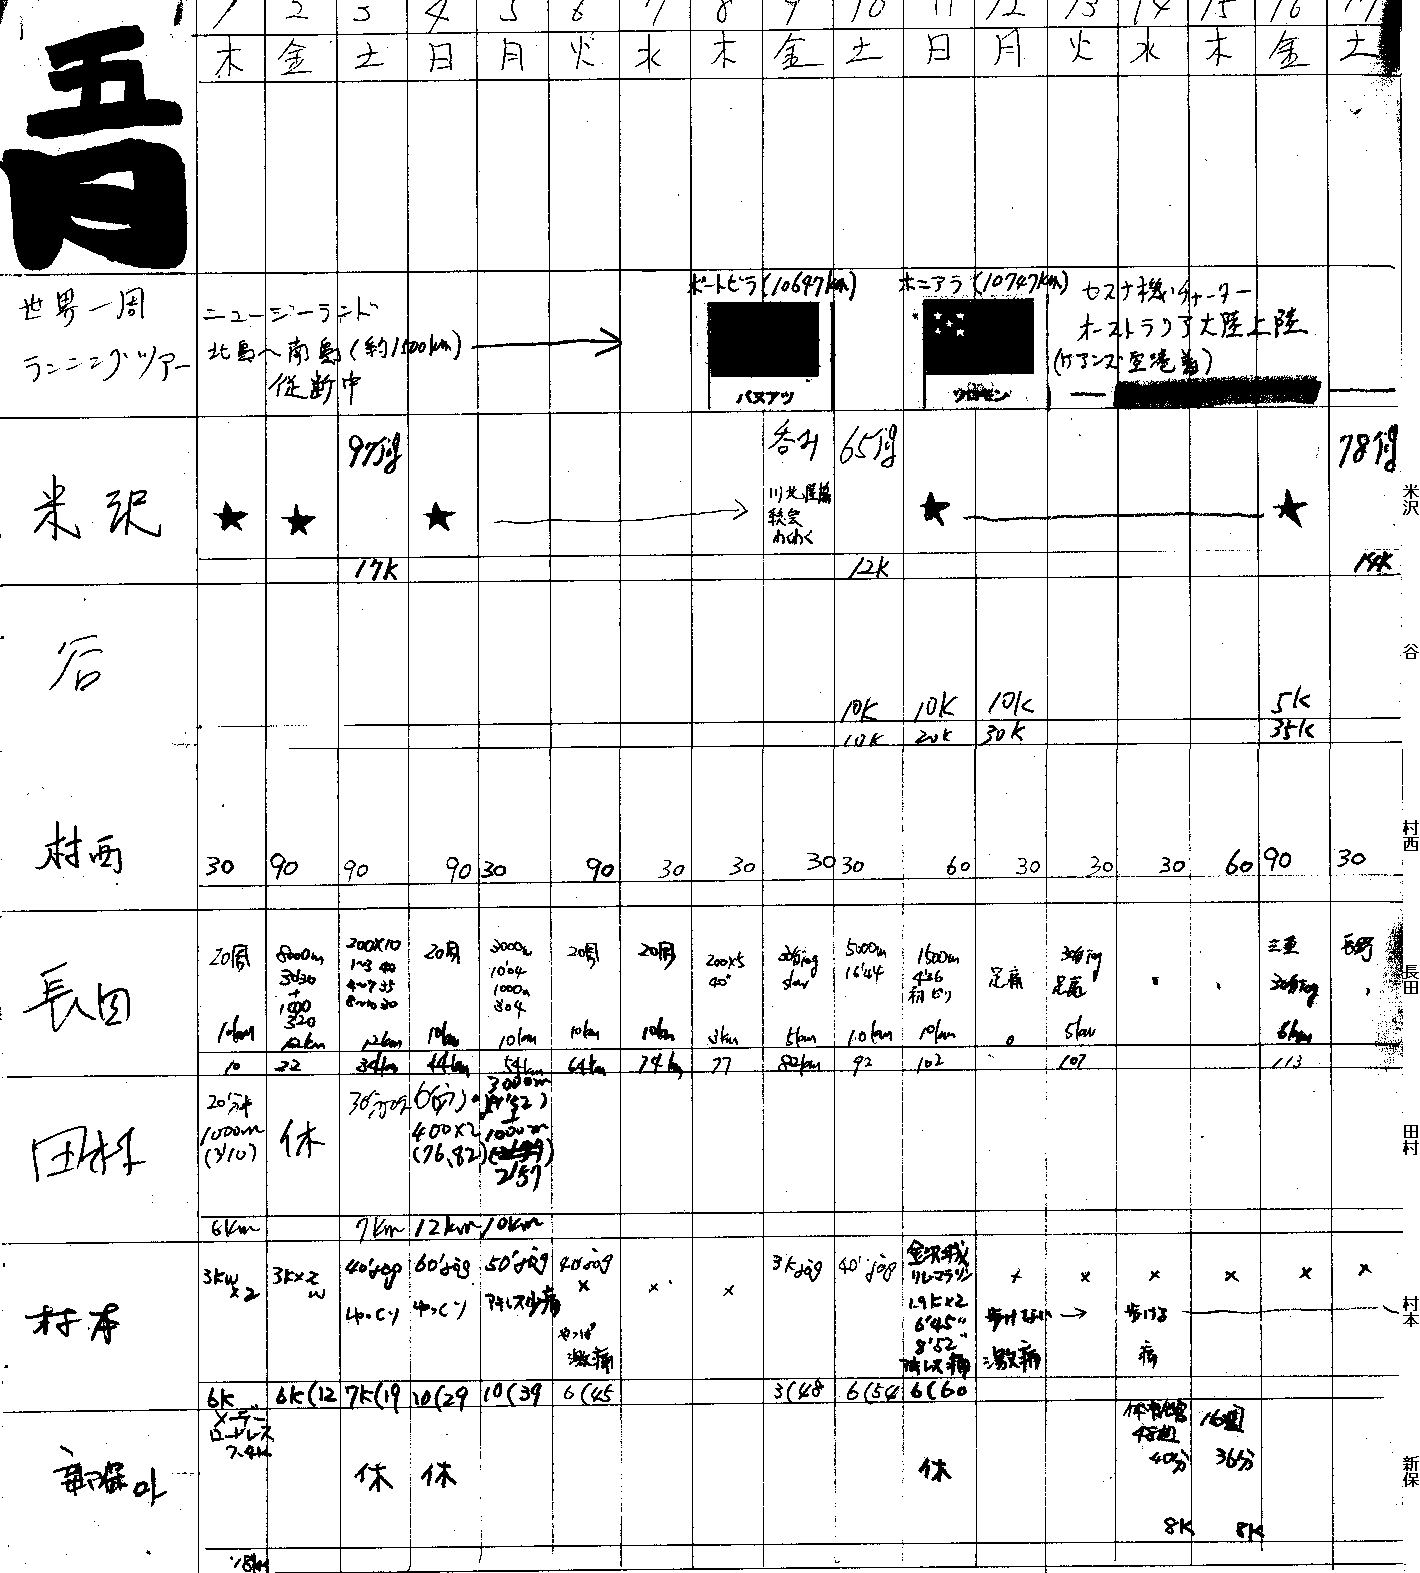 五月
1 2 3 4 5 6 7 8 9 10 11 12 13 14 15 16 17
木 金 土 日 月 火 水 木 金 土 日 月 火 水 木 金 土
世界一周
ランニングツアー
ニュージーランド
北島へ南島(約1500km)
従断中
ポートビラ(10697km)
バヌアツ
ホニアラ(10747km)
ソロモン
セスナ機チャーター
オーストラリア大陸上陸
(ケアンズ空港着)
米沢
★ ★ 97jog ★ 呑み 65jog ★ ★ 78jog
秋会
わくわく
17K 12K 14K
米沢
谷
10K 10K 10K 5K
10K 20K 30K 35K
谷
村西
30 90 90 90 30 90 30 30 30 30 60 30 30 30 60 90 30
村西
長田
20周 8000m 200×10 20周 3000m 20周 20周 200×5 30分jog 5000m 1500m 足痛 30分jog 三重 長野
30'30 1~3 40 10'04 40" slow 16'44 4'36 足痛 30分jog
+ 4~7 35 1000m
1000 8~10 30 304
320
10km 12km 12km 10km 10km 10km 10km 3km 5km 10km 10km 0 5km 6km
10 22 34km 44km 54km 64km 74km 77 82km 92 102 107 113
長田
田村
20分+ 休 400×2 3000m
1000m (76,82) +
(3'10) 1000m
2'57
6km 7km 12km 10km
田村
村本
3KW 3K×2 40'jog 60'jog 50'jog 40'jog × × 3Kjog 40'jog 金沢城 × × × × × ×
×2 W ゆっくり ゆっくり アキレス少痛 × リレーマラソン
やっぱ 1.9K×2 歩けない → 歩ける
激痛 6'45" 激痛 痛
8'52"
アキレス痛
6K 6K(12 7K(19 10(29 10(39 6(45 3(48 6(54 6(60
村本
新保
メーデー
ロードレース
7.4K
休 休 休
48周 16周
40分 36分
8K 8K
新保